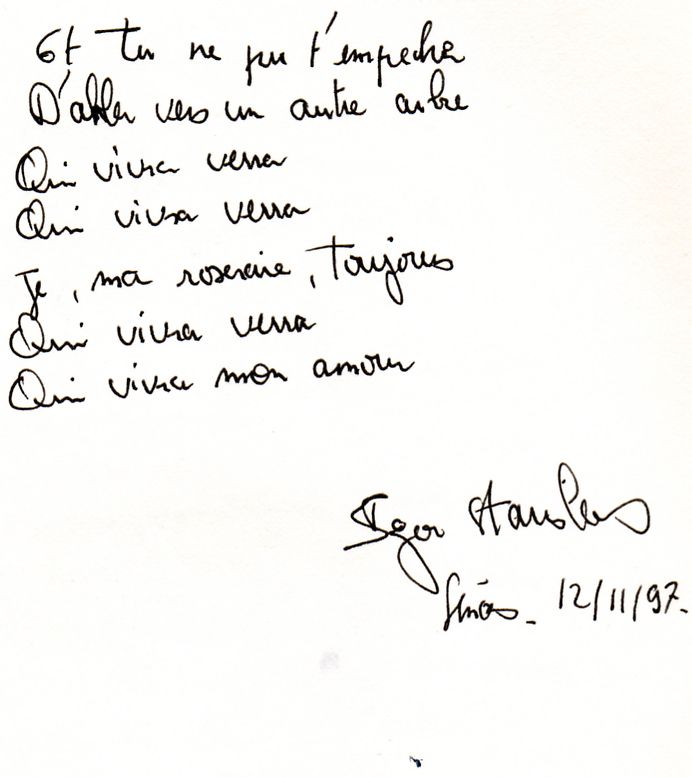 Et tu ne pu t'empecher
D'aller vers un autre arbre
Qui vivra verra
Qui vivra verra
Je, ma roseraie, toujours
Qui vivra verra
Qui vivra mon amour
Igor
12/11/97.